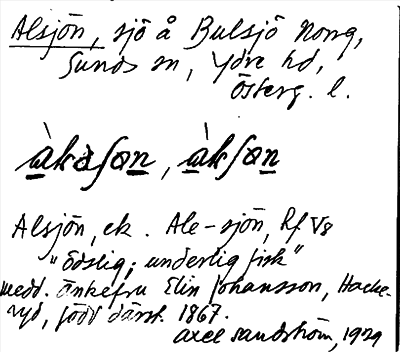 Alsjön, sjö å Bulsjö norrg,
Sunds sn, Ydre hd,
Österg. l.
Alsjön, ek. Ale-sjön, Rf V8
"ödslig; underlig fisk"
medd. änkefru Elin Johansson, Hacke-
ryd, född därst. 1867.
Axel Sandström, 1929